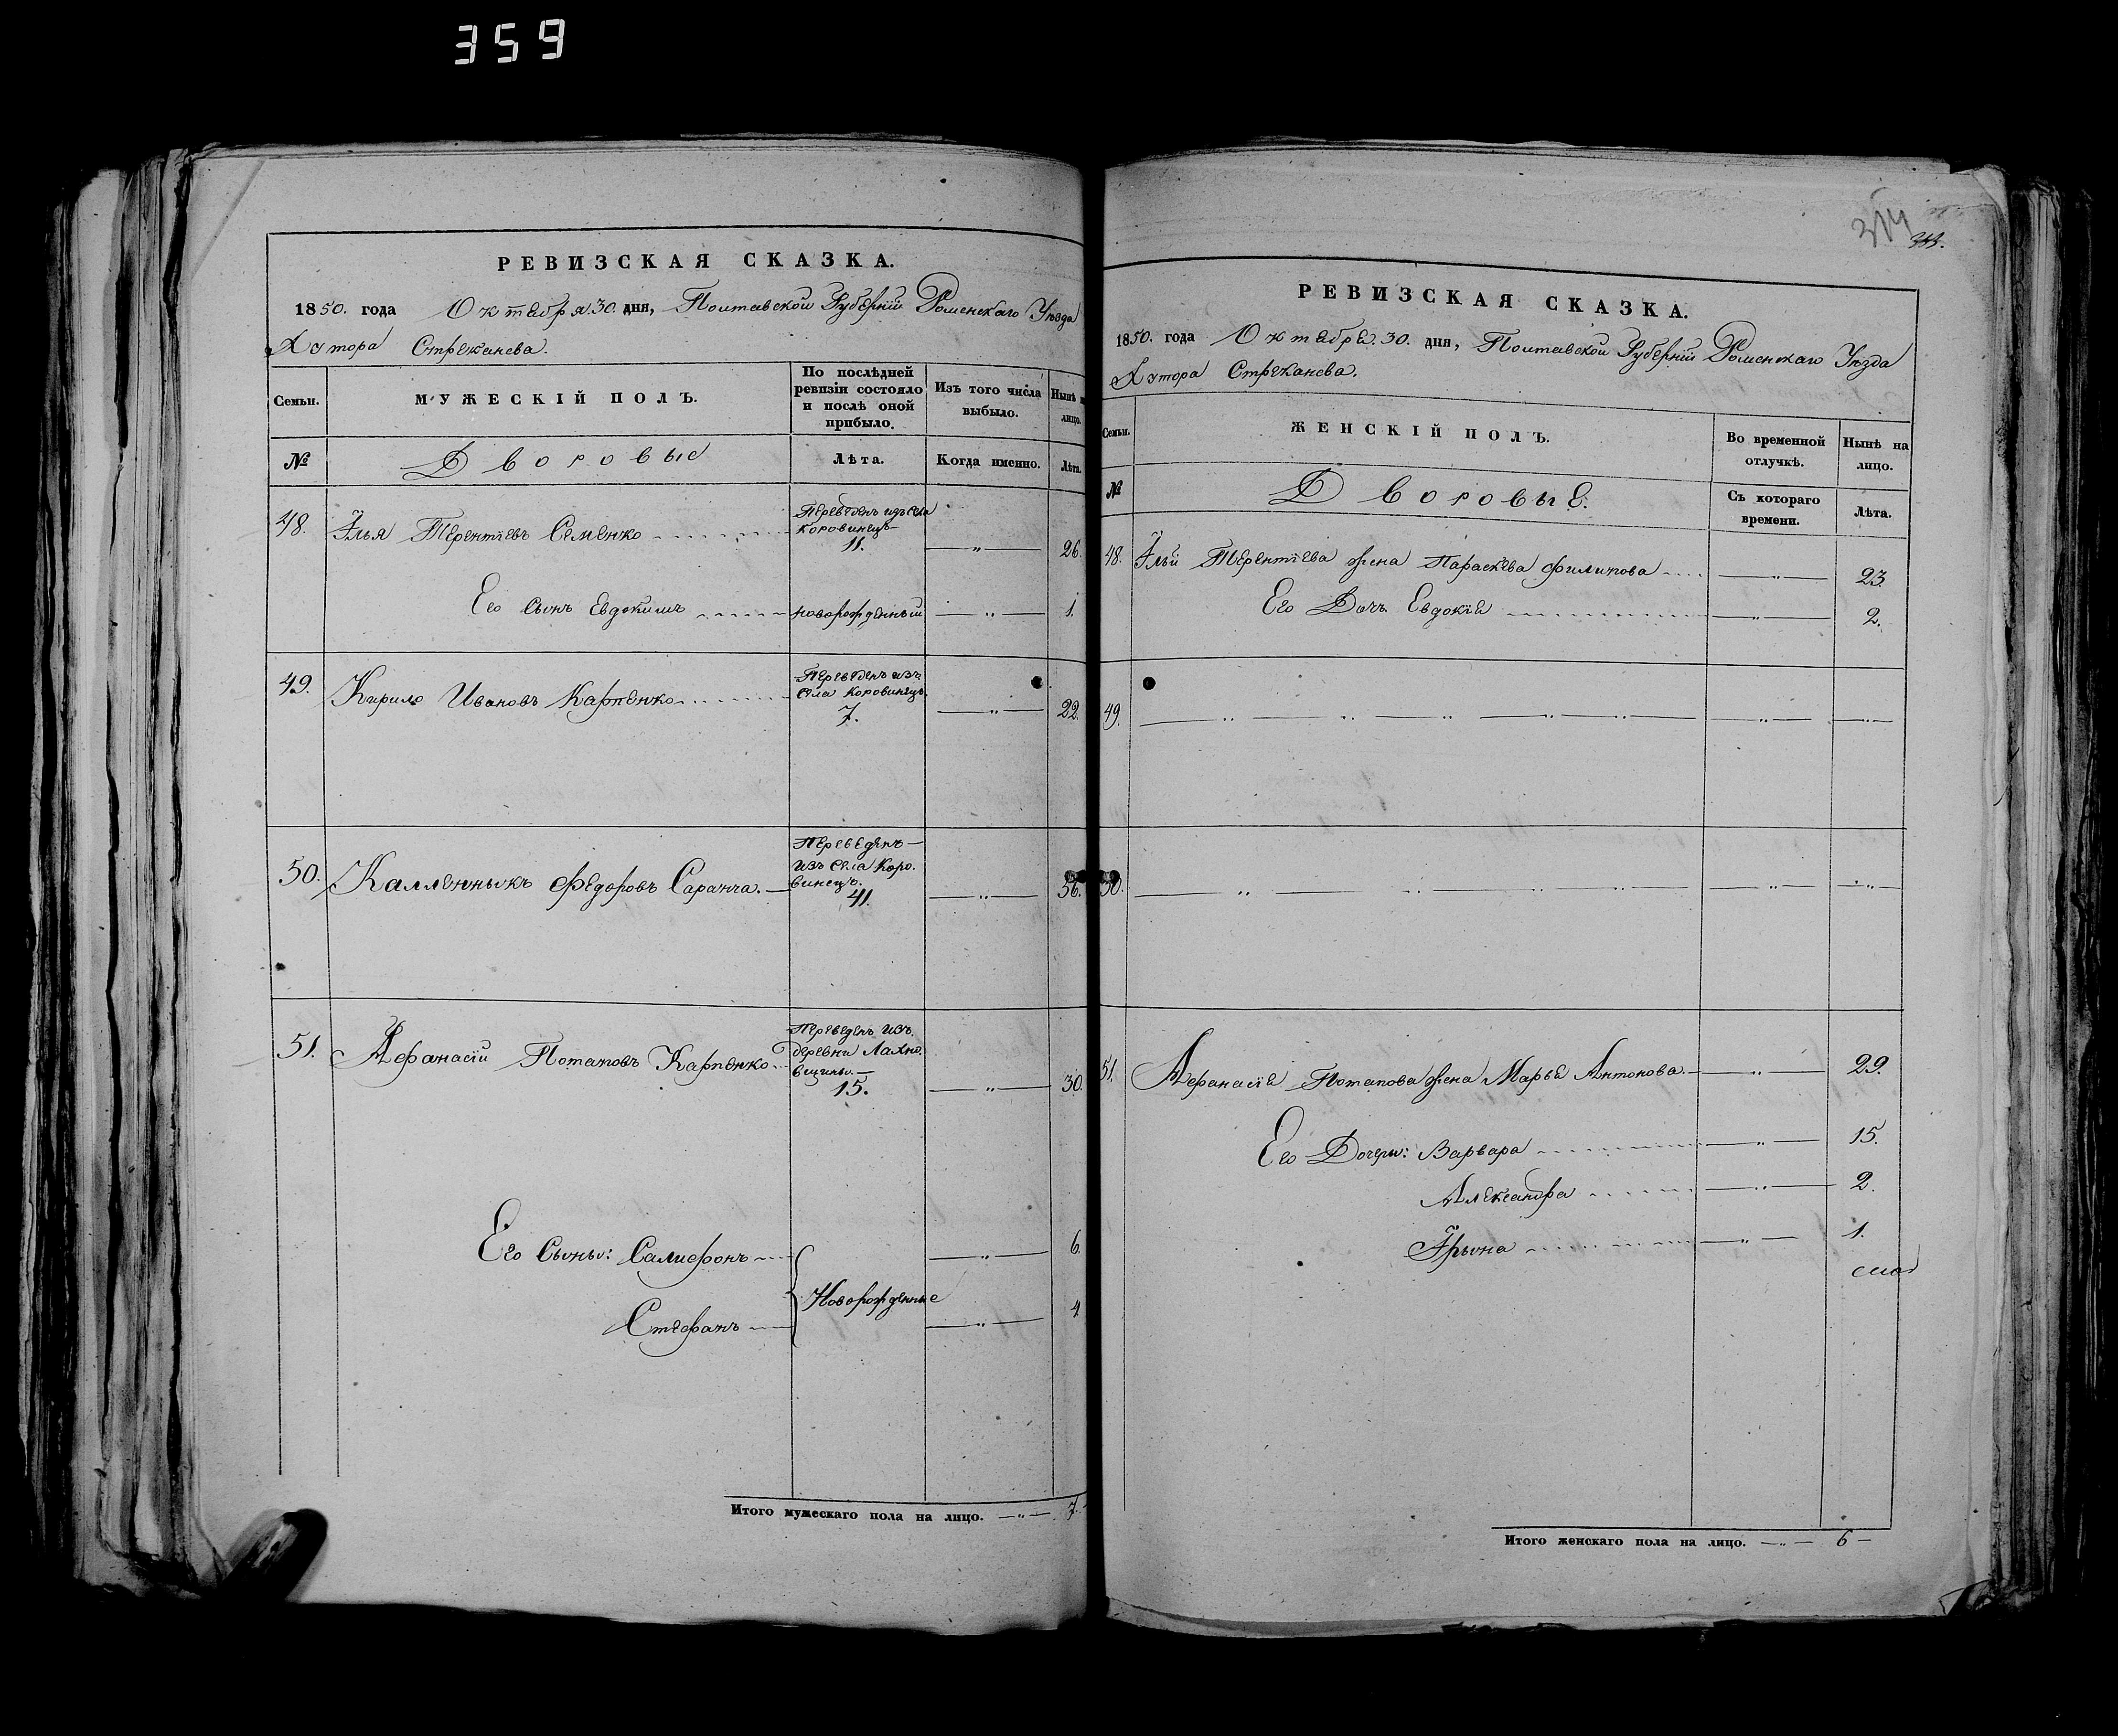 359
РЕВИЗСКАЯ СКАЗКА.
1850. года Октября 30. дня, Полтавской Губерніи Роменскаго Уѣзда
Хутора Стрекачева.
Семьи.
МУЖЕСКІЙ ПОЛЪ.
По послѣдней ревизіи состояло и послѣ оной прибыло.
Изъ того числа выбыло.
Нынѣ на лицо.
№
Дворовые
Лѣта.
Когда именно.
Лѣта.
48. Илья Терентіевъ Семенко
Переведенъ изъ села
Коровинецъ
11. 26.
Его Сынъ Евдокимъ новорожденный 1.
49. Кирило Ивановъ Карпенко
Переведенъ изъ
села Коровинецъ.
7. 22.
50. Калленныкъ Федоровъ Саранча.
Переведенъ
изъ села Коро.
винецъ.
41. 56.
51. Афанасій Потаповъ Карпенко
Переведенъ изъ.
деревни Лахно.
вщины.
15. 30.
Его Сыны: Салифонъ 6.
Новорожденные
Стефанъ 4
Итого мужескаго пола на лицо. 7.
314
РЕВИЗСКАЯ СКАЗКА.
1850. года Октября. 30. дня, Полтавской Губерніи Роменскаго Уѣзда
Хутора Стрекачева.
Семьи.
ЖЕНСКІЙ ПОЛЪ.
Во временной отлучкѣ.
Нынѣ на лицо.
№
Дворовые.
Съ котораго времени.
Лѣта.
48. Ильи Терентіева жена Параскева Филипова 23.
Его Дочь Евдокія 2.
49.
50.
51. Афанасія Потапова жена Марья Антонова. 29.
Его Дочери: Варвара 15.
Александра 2.
Ирына 1.
Итого женскаго пола на лицо. 6